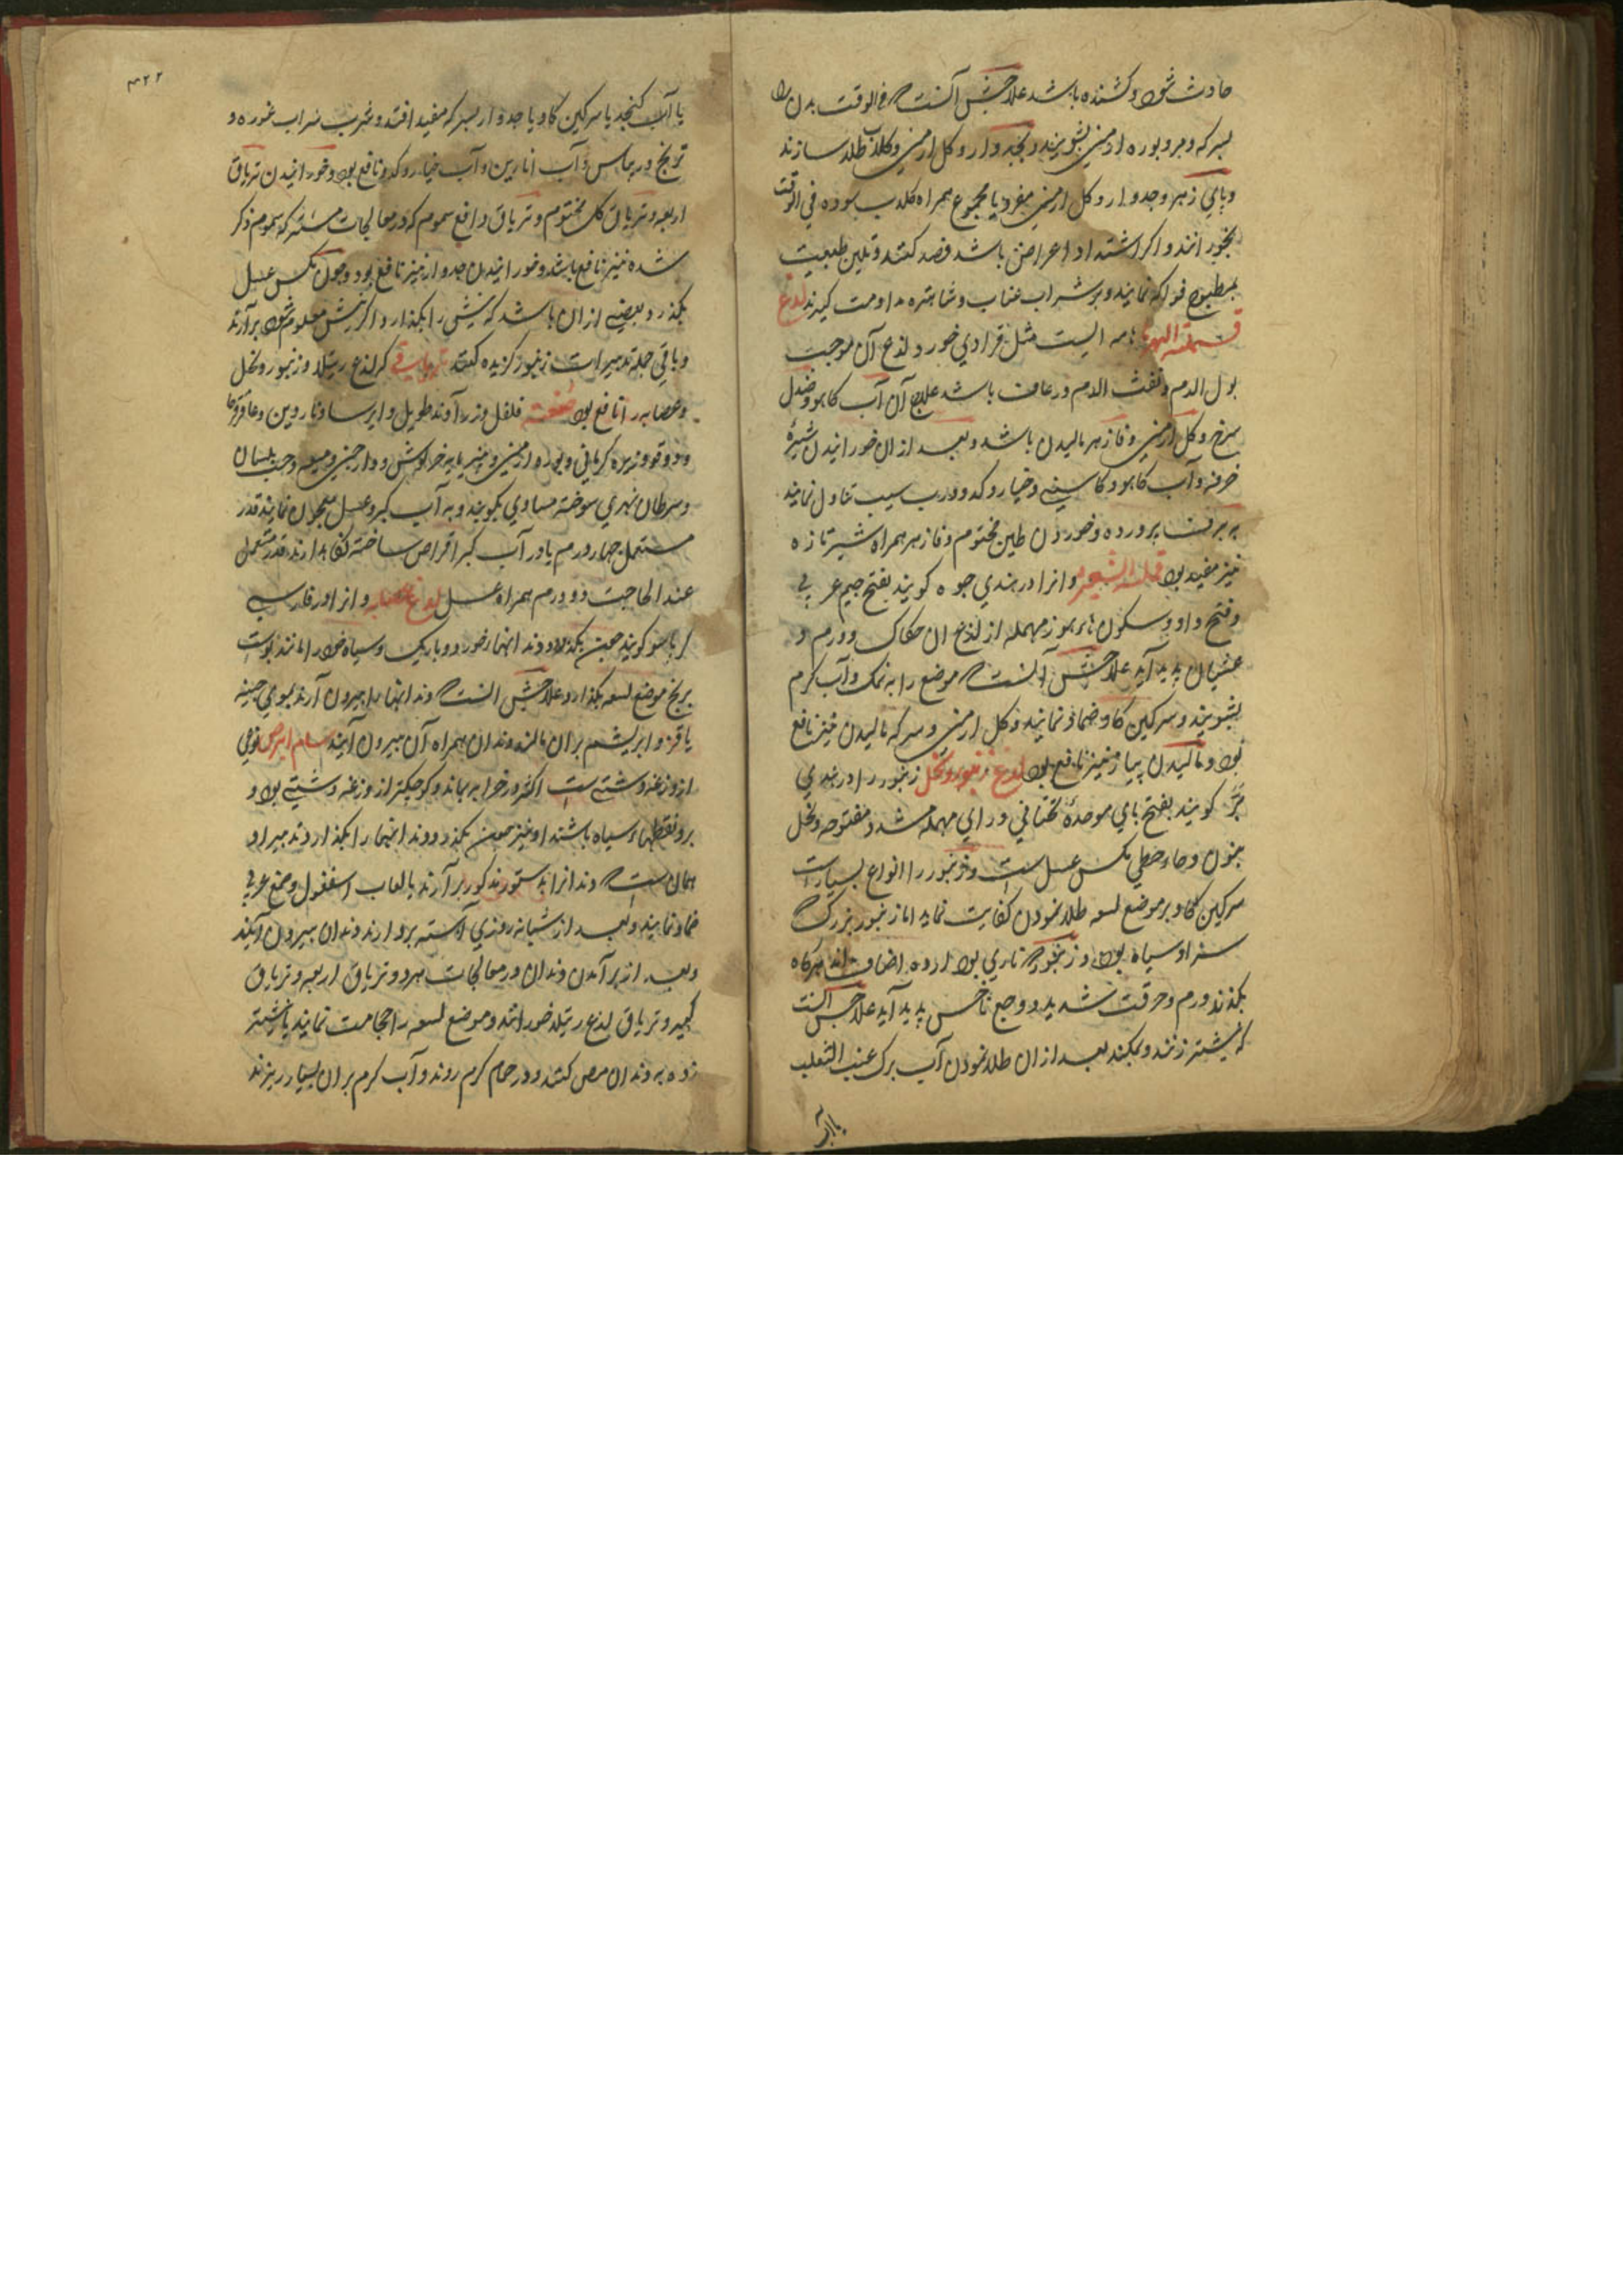 حادث شود و کشنده باشد علاجش آنست که فی الوقت بدن را
بسرکه و بوره ارمنی بشویند و بجدوار و کل ارمنی و کلاب طلا سازند
و پای زهر و جدوار و کل ارمنی مفرد یا مجموع همراه کلاب سوده فی الوقت
بخورانند و اکر اشتداد اعراض باشد فصد کنند و تلین طبیعت
بمطبوخ فواکه نمایند و بر شراب عناب و شاهتره مداومت کیرند لدغ
قملة النسر هامه ایست مثل قرادی خورد و لذع آن موجب
بول الدم و نفث الدم و رعاف باشد علاج آن آب کاهو و صندل
سرخ و کل ارمنی و فازهر مالیدن باشد و بعد ازان خورانیدن شیره
خرفه و آب کاهو و کاسنی و خیار و کدو و رب سیب تناول نمایند
به برف پرورده و خوردن طین مختوم و فازهر همراه شیر تازه
نیز مفید بود وانرا در هندی جوه کویند بفتح جیم عربی
و فتح واو و سکون هاء هوز مهمله از لذع ان حکاک و ورم و
غثیان پدید آید علاجش آنست که موضع را به نمک و آب کرم
بشویند و سرکین کاو ضماد نمایند و کل ارمنی و سرکه مالیدن نیز نافع
بود و مالیدن پیاز نیز نافع بود لدغ زنبور و نحل زنبور را در هندی
بر کویند بفتح بای موحده تحتانی و رای مهمله مشدد مفتوحه و نحل
بنون و حاء حطی مکس عسل ست و زنبور را انواع بسیار است
سرکین کاو بر موضع لسعه طلا نمودن کفایت نماید اما زنبور بزرک
سر او سیاه بود و زنبور که ناری بود اضاف اند هرکاه
بکذند ورم و حرقت شدید و وجع ناخس پدید آید علاجش آنست
که نیشتر زنند و بمکند بعد ازان طلا نمودن آب برک عنب الثعلب
یا آب
۴۲۲
یا آب کنجد یا سرکین کاو یا جدوار بسرکه مفید افتد و شرب شراب غوره و
ترنج و ریباس و آب انارین و آب خیار و کدو نافع بود و خورانیدن تریاق
اربعه و تریاق کل مختوم و تریاق دافع سموم که در معالجات مشترکه سموم ذکر
شده نیز نافع باشد و خورانیدن جدوار نیز نافع بود و چون مکس عسل
بکذد و بعضی ازان باشد که نیش را بکذارد اکر نیش معلوم شود برآرند
و باقی جمله تدبیرات زنبور کزیده کنند تریاقی که لذع رتیلا و زنبور و نحل
و عضایه را نافع بود صفته فلفل و زرآوند طویل و ایرسا و ناردین و عاقرقرحا
و دوقو و زیره کرمانی و بوره ارمنی و پنیر مایه خرکوش و دارچینی و میعه و حب بلسان
و سرطان نهری سوخته مساوی بکوبند و به آب کبر و عسل معجون نمایند قدر
مستعمل چهار درم یا در آب کبر اقراص ساخته نکاهدارند قدر مستعمل
عند الحاجت دو درم همراه عسل لدغ عضایه وانرا در فارسی
کرباسو کویند حین بکذد و دندانها خورد و باریک و سیاه خود را مانند پوست
برنج موضع لسعه بکذارد علاجش انست که دندانها را بیرون آرند بموی چینه
یا قز و ابریشم بران مالند دندان همراه آن بیرون آیند سام ابرص نوعی
از وزغه دشتی ست اکثر در خرابه بماند و کوچکتر از وزغه دشتی بود و
برو نقطهاء سیاه باشند او نیز حین بکذد دندانها را بکذارد تدبیر او
همان ست که دندانرا بدستور مذکور برآرند یا لعاب اسفغول و صمغ عربی
ضماد نمایند و بعد از شبانه روزی آهسته بردارند دندان بیرون آیند
و بعد از برآمدن دندان در معالجات بهر دو تریاق اربعه و تریاق
کبیر و تریاق لذع رتیلا خورانند و موضع لسعه را حجامت نمایند یا نشتر
زده به دندان مص کنند و در حمام کرم روند و آب کرم بران بسیار ریزند